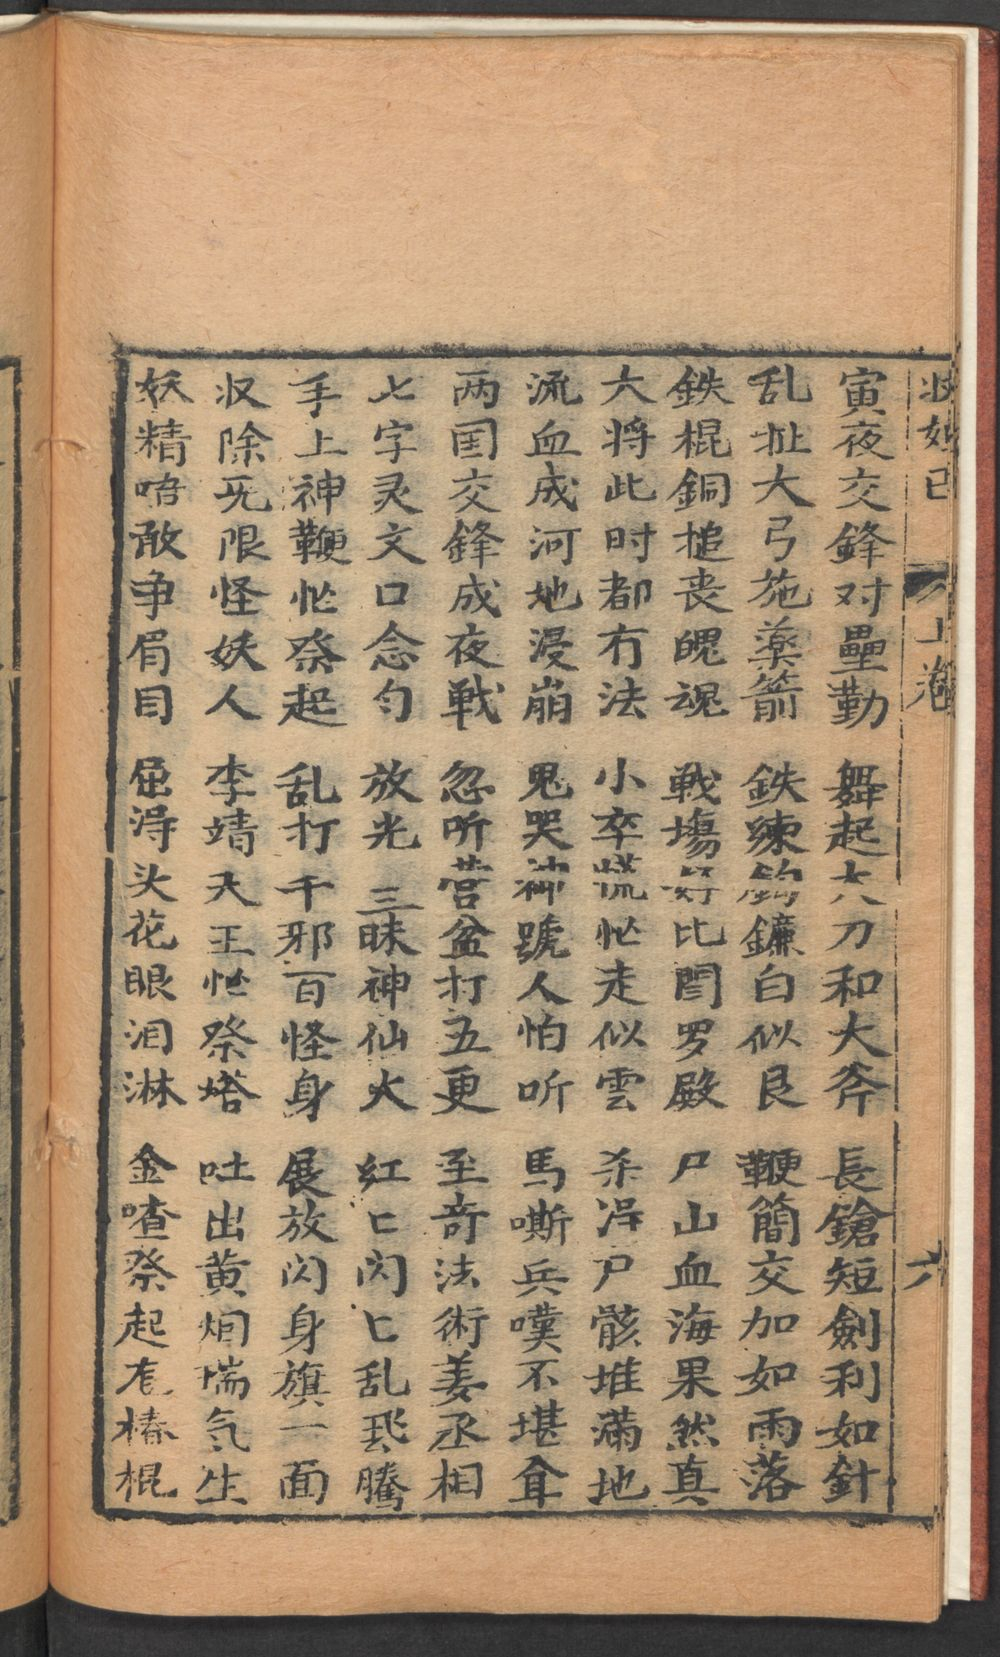 妲己 上卷 六
寅夜交鋒对壘勤 舞起大刀和大斧 長鎗短劍利如針
乱扯大弓施薬箭 鉄練鈎鐮白似艮 鞭簡交加如雨落
鉄棍銅搥丧魄魂 戰塲好比閆罗殿 尸山血海果然真
大将此时都冇法 小卒慌忙走似雲 杀得尸骸堆满地
流血成河地浸崩 鬼哭神號人怕听 馬嘶兵嘆不堪耸
两国交鋒成夜戰 忽听营盆打五更 至奇法術姜丞相
七字灵文口念匀 放光三昧神仙火 红匕闪匕乱飛騰
手上神鞭忙祭起 乱打千邪百怪身 展放闪身旗一面
収除旡限怪妖人 李靖天王忙祭塔 吐出黄烟喘气生
妖精唔敢争眉目 屈得头花眼泪淋 金喳祭起龙椿棍